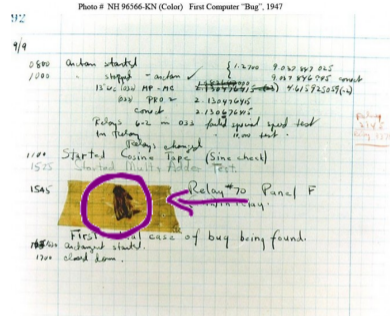 Photo # NH 96566-KN (Color) First Computer "Bug", 1947
92
9/9
0800 antan started
1000 " stopped - antan ✓
{ 1.2700 9.037 847 025
9.037 846 995 correct
13"uc (032) MP - MC 2.130476415 4.615925059(-2)
(033) PRO 2 2.130476415
correct 2.130676415
Relays 6-2 in 033 failed special speed test
in relay test.
Relays changed
1100 Started Cosine Tape (Sine check)
1525 Started Multy Adder Test.
1545 Relay #70 Panel F
relay.
First case of bug being found.
antangent started.
1700 closed down.